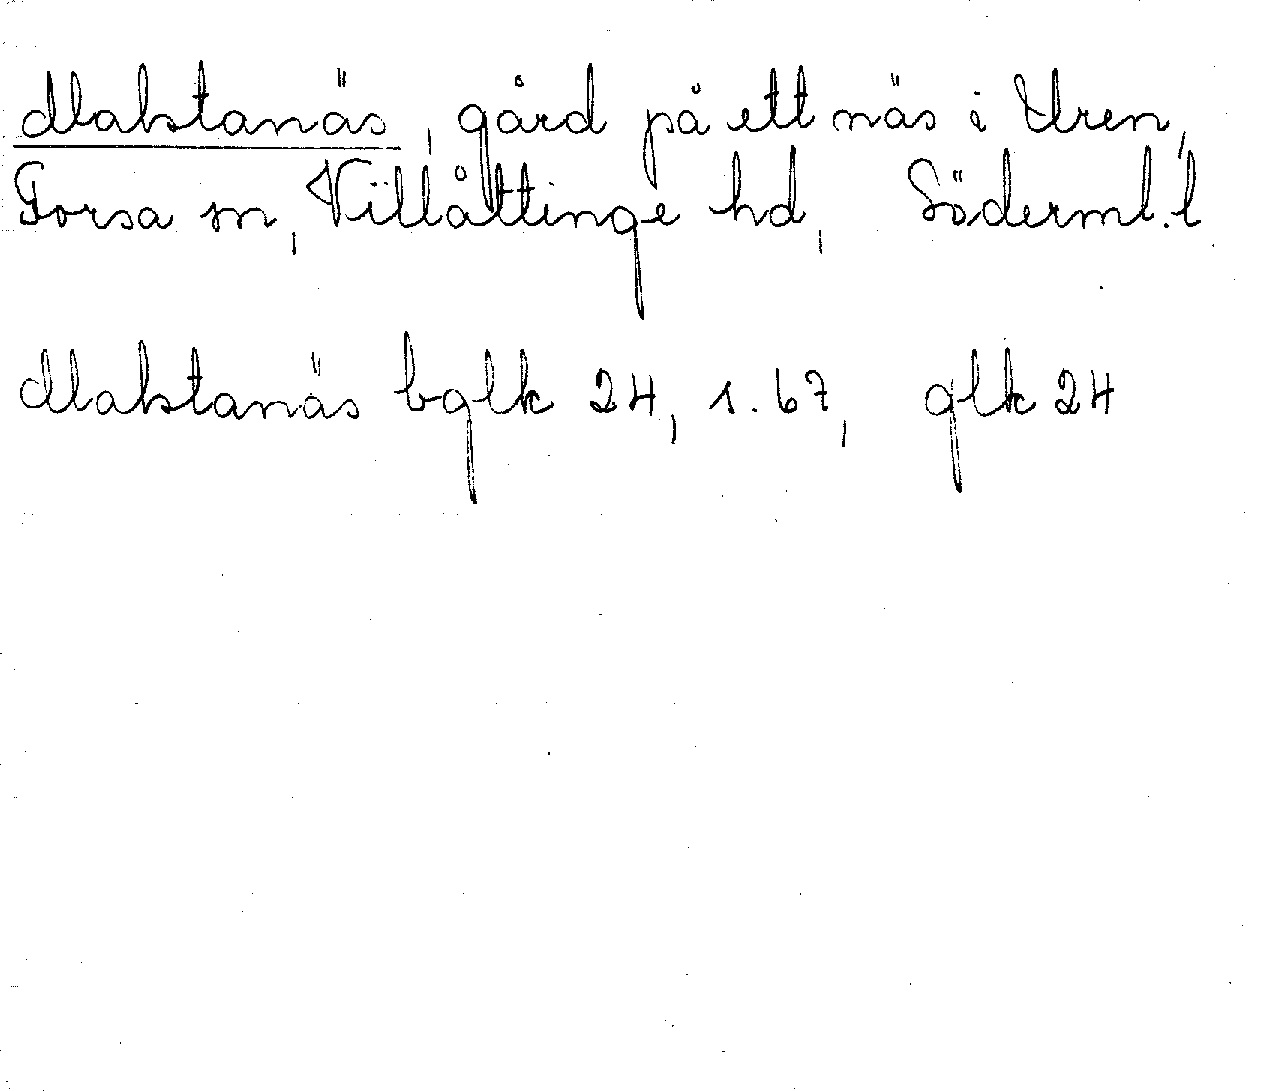 Makstanäs, gård på ett näs i Uren,
Forsa sn, Villåttinge hd, Söderml. l
Makstanäs bglk 24, 1.67, glk 24